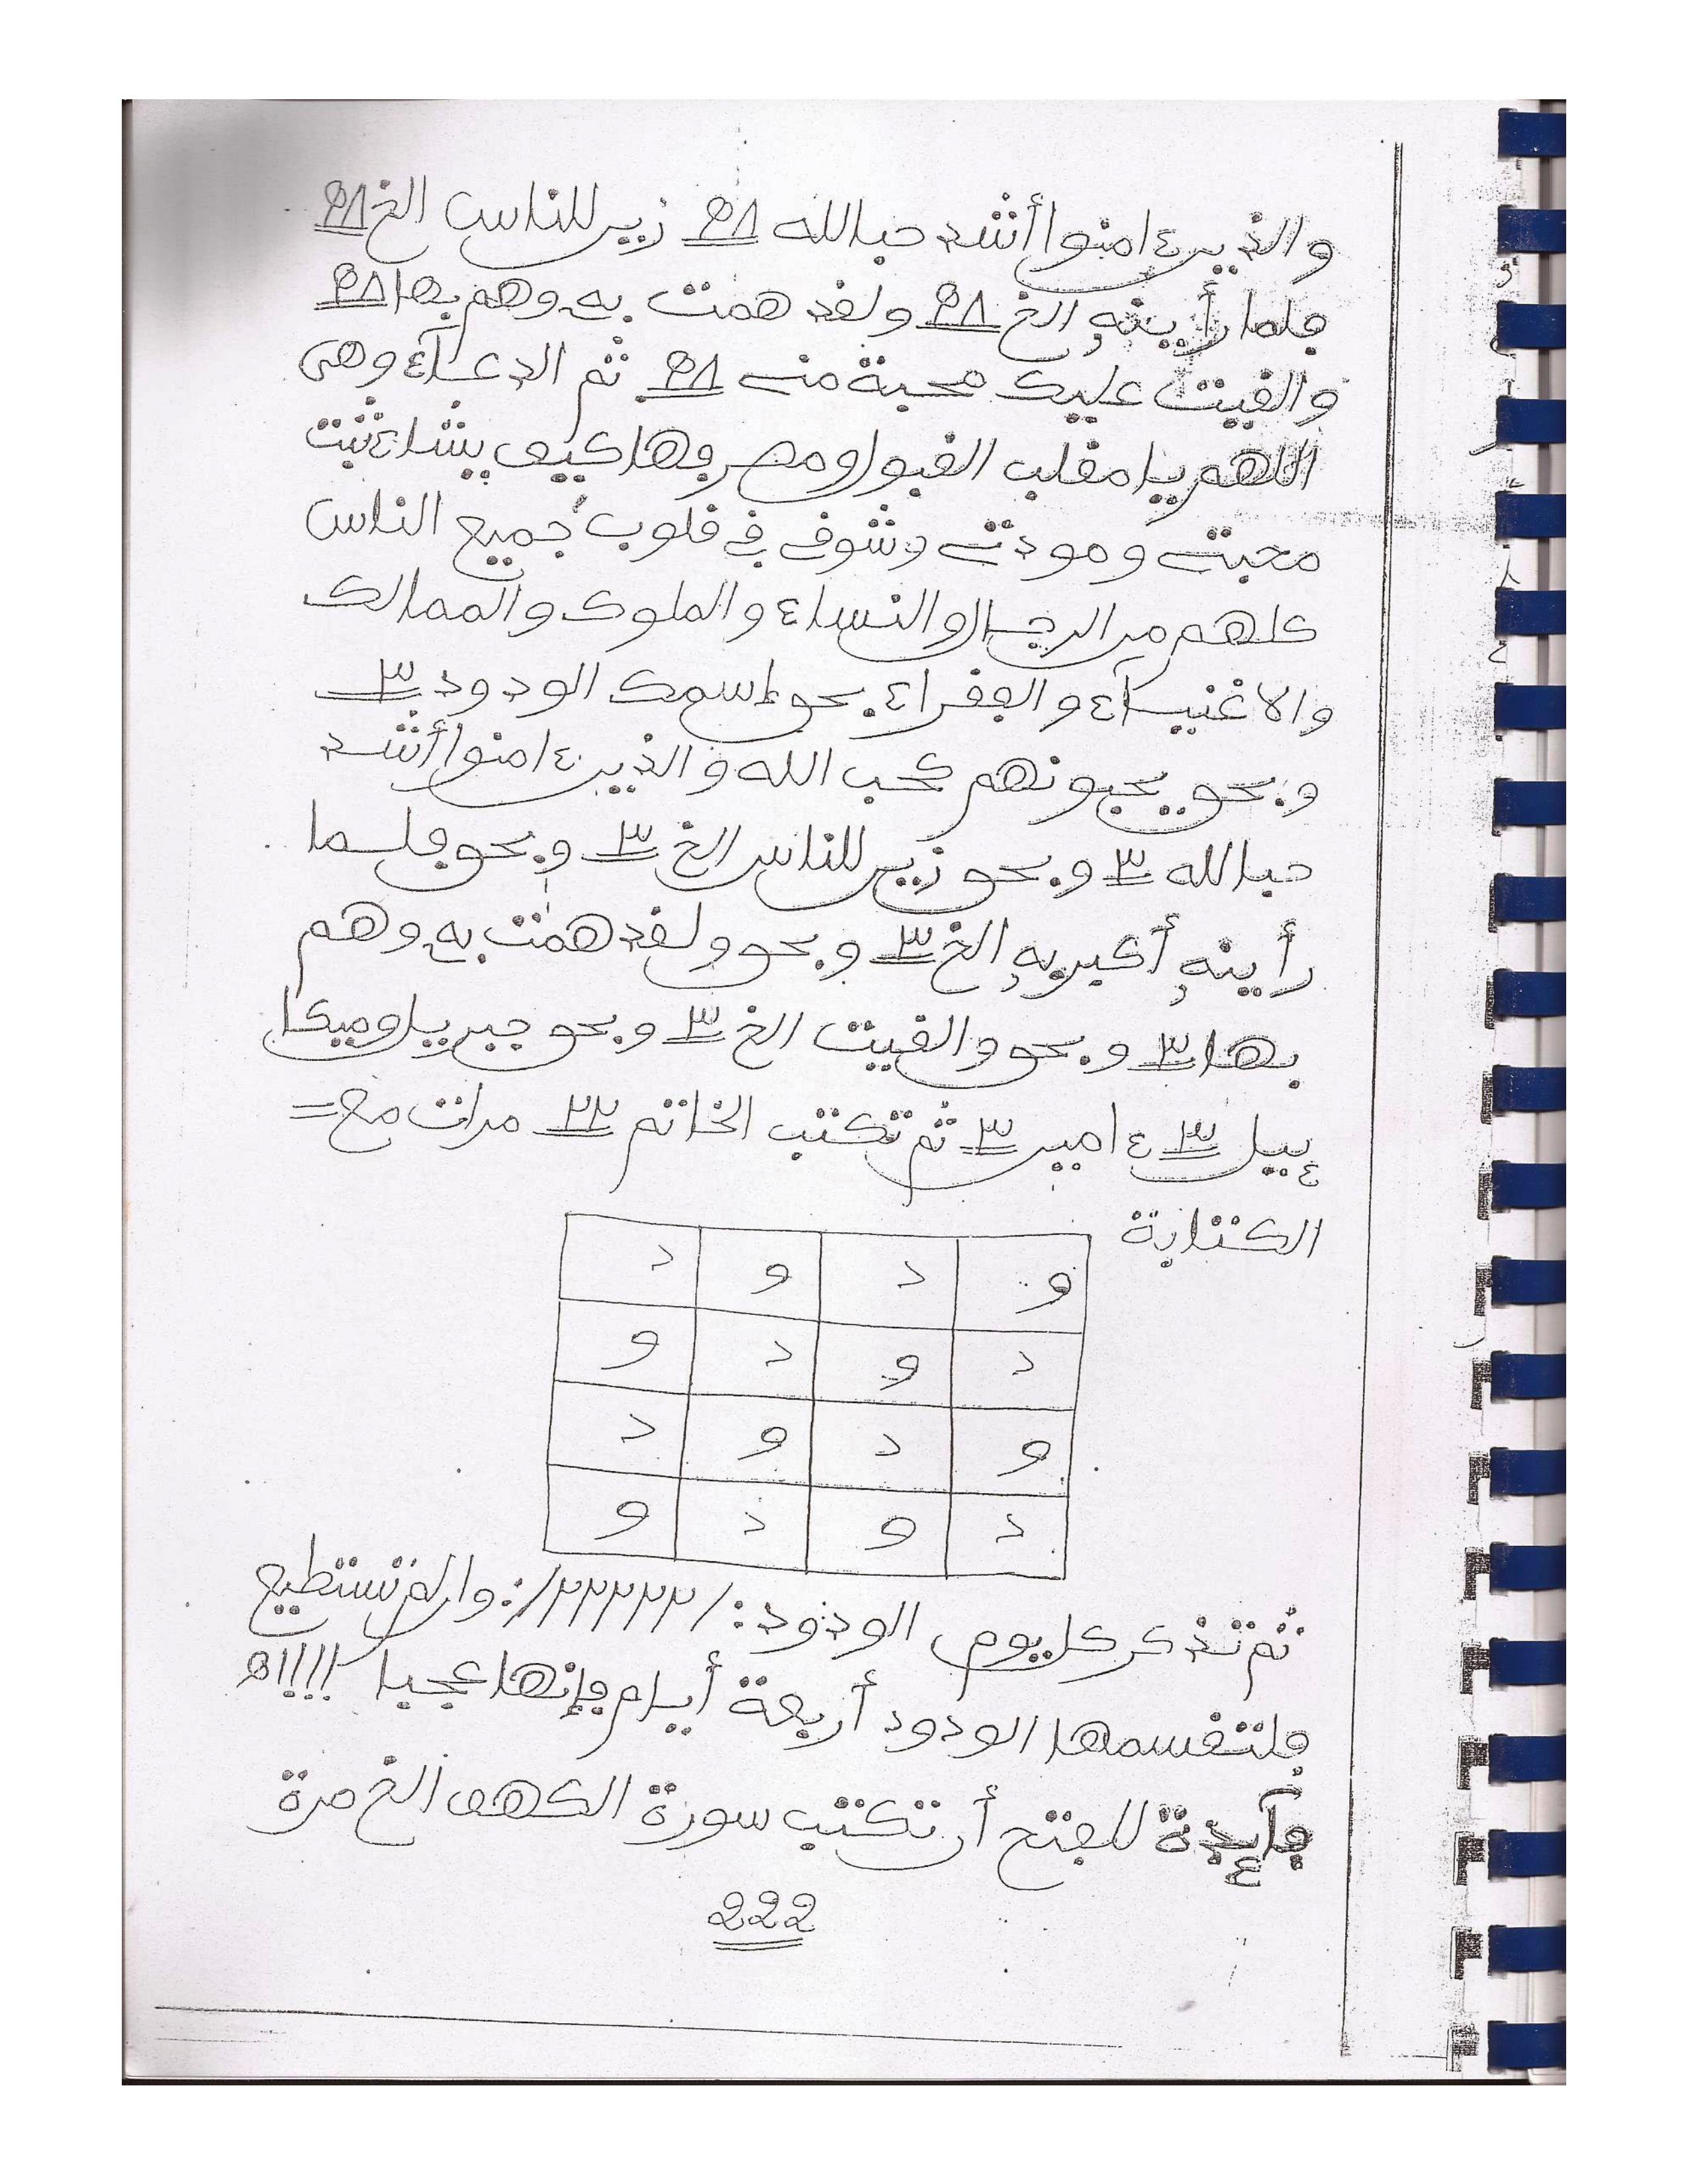 والذين ءامنوا أشد حبا لله ٩٨ زين للناس الخ ٩٨
فلما رأينه الخ ٩٨ ولقد همت به وهم بها ٩٨
والقيت عليك محبة منى ٩٨ ثم الدعآء وهى
اللهم يا مقلب القبول ومصرفها كيف يشاء ثبت
محبتى ومودتى وشوفى فى قلوب جميع الناس
كلهم من الرجال والنساء والملوك والممالك
والاغنيآء والفقراء بحق اسمك الودود ٣
وبحق يحبونهم كحب الله والذين ءامنوا أشد
حبا لله ٣ وبحق زين للناس الخ ٣ وبحق فلما
رأينه أكبرنه الخ ٣ وبحق ولقد همت به وهم
بها ٣ وبحق والقيت الخ ٣ وبحق جبريل وميكا
ءيل ٣ ءامين ٣ ثم تكتب الخاتم ٢٢ مرات مع=
الكتابة
و د و د
د و د و
و د و د
د و د و
ثم تذكر كل يوم الودود :/٢٢٢٢٢/: وإن لم تستطيع
فلتقسمها الودود أربعة أيام فإنها عجيبا !!!!اه
فآئدة للفتح أن تكتب سورة الكهف الخ مرة
222